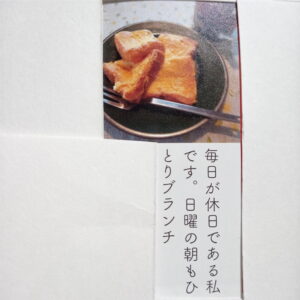 毎日が休日である私
です。日曜の朝もひ
とりブランチ